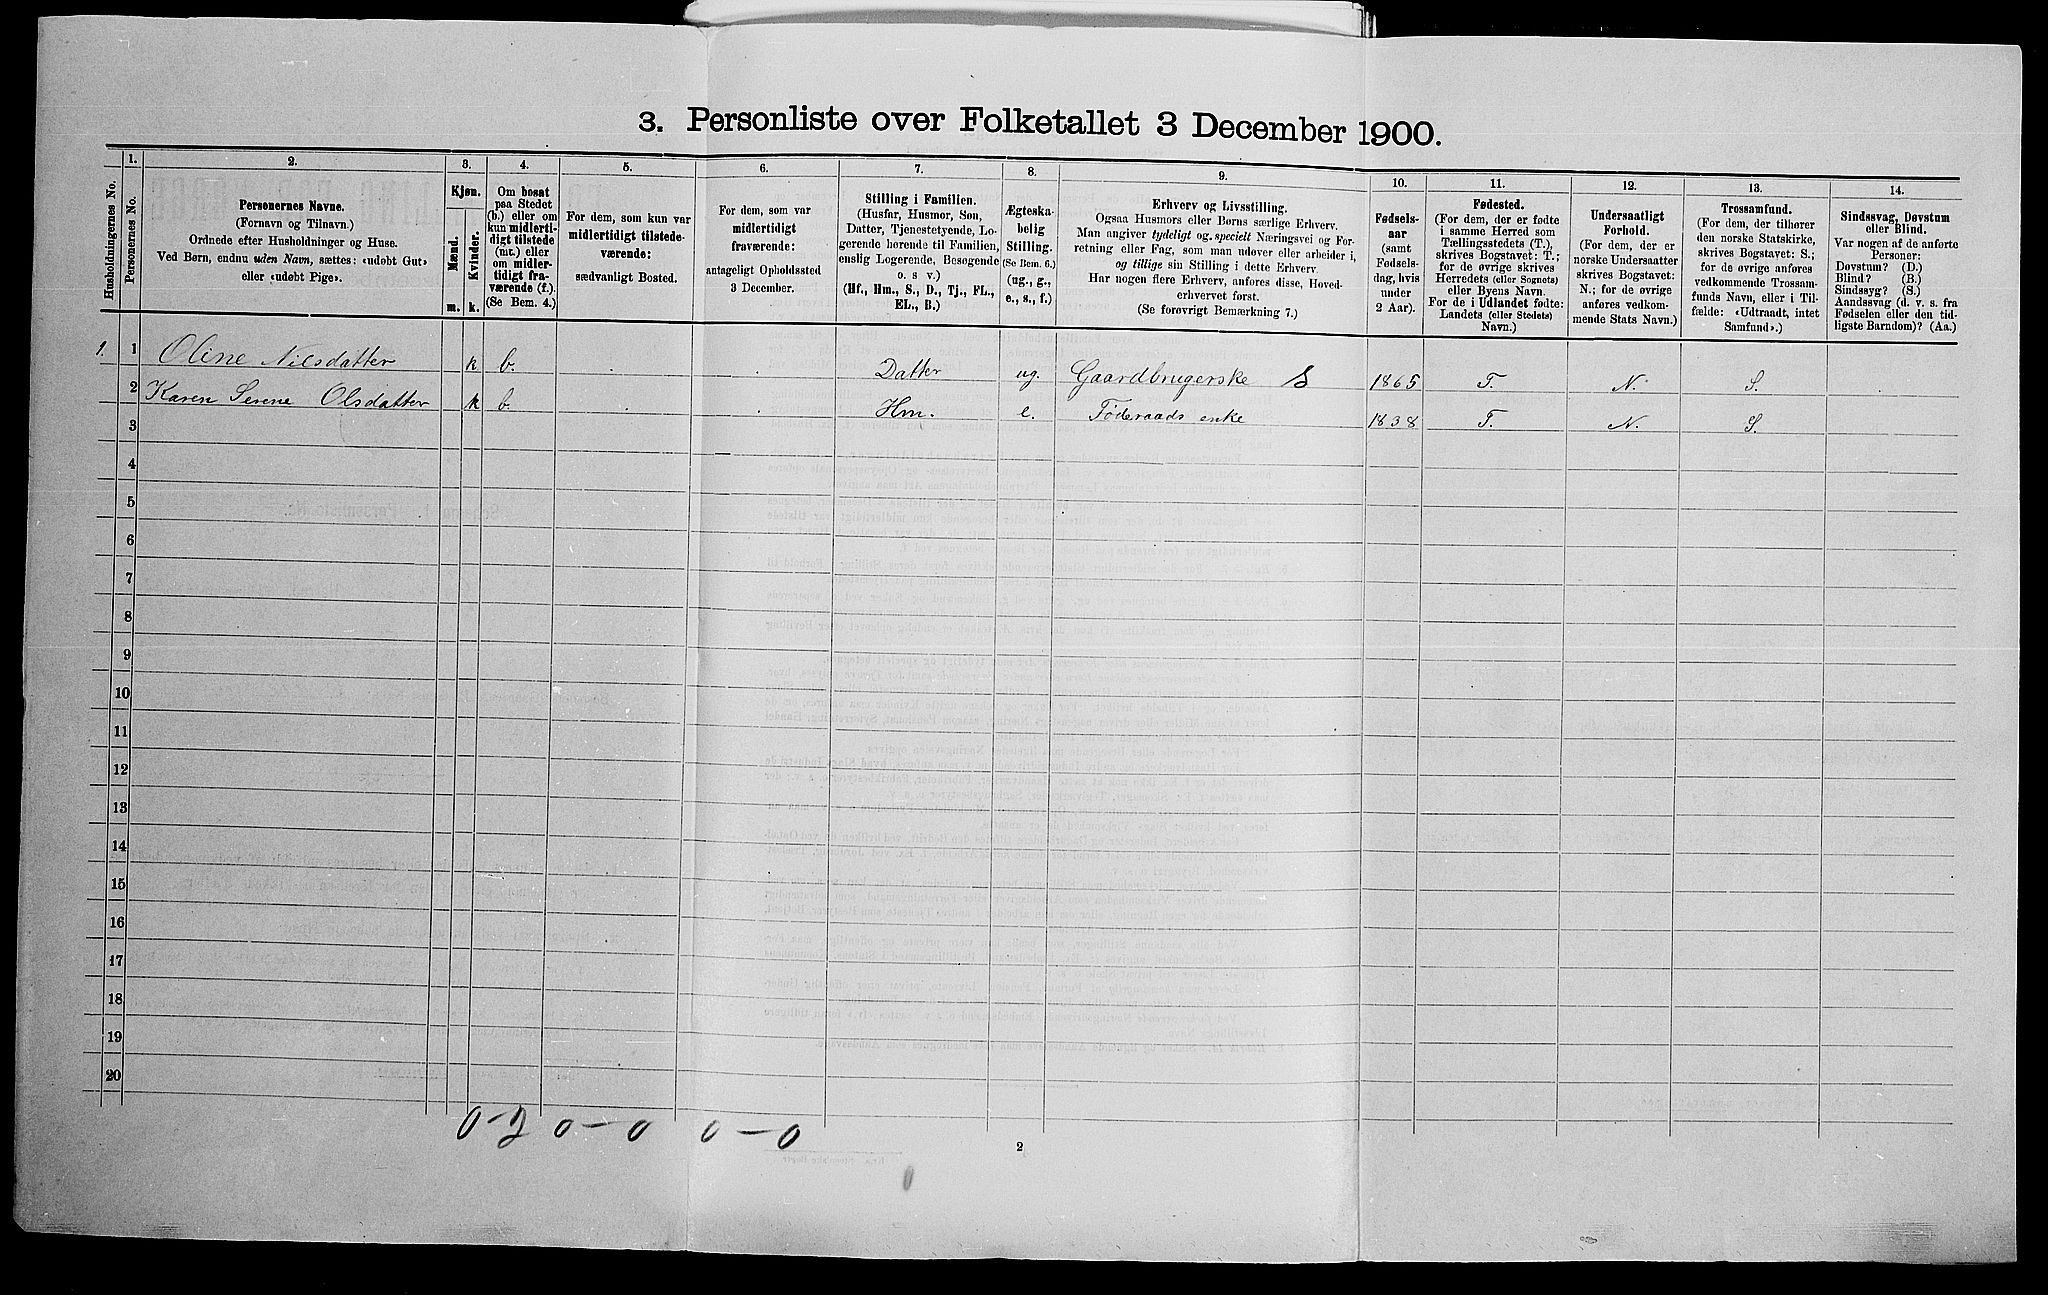 3. Personliste over Folketallet 3 December 1900.
Husholdningernes No.
1.
Personernes No.
2.
Personernes Navne.
(Fornavn og Tilnavn.)
Ordnede efter Husholdninger og Huse.
Ved Børn, endnu uden Navn, sættes: «udøbt Gut»
eller «udøbt Pige».
3.
Kjøn.
Mænd.
Kvinder.
m. k.
4.
Om bosat
paa Stedet
(b.) eller om
kun midlerti-
digt tilstede
(mt.) eller
om midler-
tidigt fra-
værende (f.).
(Se Bem. 4.)
5.
For dem, som kun var
midlertidigt tilstede-
værende:
sædvanligt Bosted.
6.
For dem, som var
midlertidigt
fraværende:
antageligt Opholdssted
3 December.
7.
Stilling i Familien.
(Husfar, Husmor, Søn,
Datter, Tjenestetyende, Lo-
gerende hørende til Familien,
enslig Logerende, Besøgende
o. s v.)
(Hf., Hm., S., D., Tj., FL.,
EL., B.)
8.
Ægteska-
belig
Stilling.
(Se Bem. 6.)
(ug., g.,
e., s., f.)
9.
Erhverv og Livsstilling.
Ogsaa Husmors eller Børns særlige Erhverv.
Man angiver tydeligt og specielt Næringsvei og For-
retning eller Fag, som man udøver eller arbeider i,
og tillige sin Stilling i dette Erhverv.
Har nogen flere Erhverv, anføres disse, Hoved-
erhvervet først.
(Se forøvrigt Bemærkning 7.)
10.
Fødsels-
aar
(samt
Fødsels-
dag, hvis
under
2 Aar).
11.
Fødested.
(For dem, der er fødte
i samme Herred som
Tællingsstedets (T.),
skrives Bogstavet: T.;
for de øvrige skrives
Herredets (eller Sognets)
eller Byens Navn.
For de i Udlandet fødte:
Landets (eller Stedets)
Navn.)
12.
Undersaatligt
Forhold.
(For dem, der er
norske Undersaatter
skrives Bogstavet:
N.; for de øvrige
anføres vedkom-
mende Stats Navn.)
13.
Trossamfund.
(For dem, der tilhører
den norske Statskirke,
skrives Bogstavet: S.;
for de øvrige anføres
vedkommende Trossam-
funds Navn, eller i Til-
fælde: «Udtraadt, intet
Samfund».)
14.
Sindssvag, Døvstum
eller Blind.
Var nogen af de anførte
Personer:
Døvstum? (D.)
Blind? (B.)
Sindssyg? (S.)
Aandssvag (d. v. s. fra
Fødselen eller den tid-
ligste Barndom)? (Aa.)
1. 1 Oline Nilsdatter k b. Datter ug. Gaardbrugerske S 1865 T. N. S.
2 Karen Serene Olsdatter k b. Hm. e. Føderaads enke 1838 T. N. S.
3
4
5
6
7
8
9
10
11
12
13
14
15
16
17
18
19
20
0-2 0-0 0-0
2
0